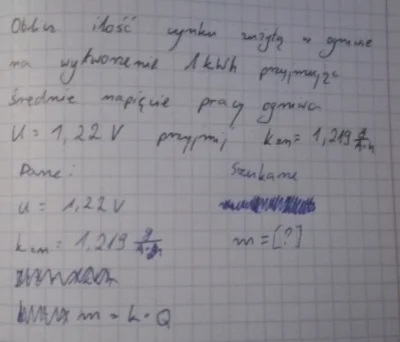 Oblicz ilość cynku zużytą w ogniwie
na wytworzenie 1 kWh przyjmując
średnie napięcie pracy ogniwa
U = 1,22 V przyjmij k zn = 1,219 g/A·h
Dane: Szukane
U = 1,22 V
k zn = 1,219 g/A·h m = [?]
m = k · Q